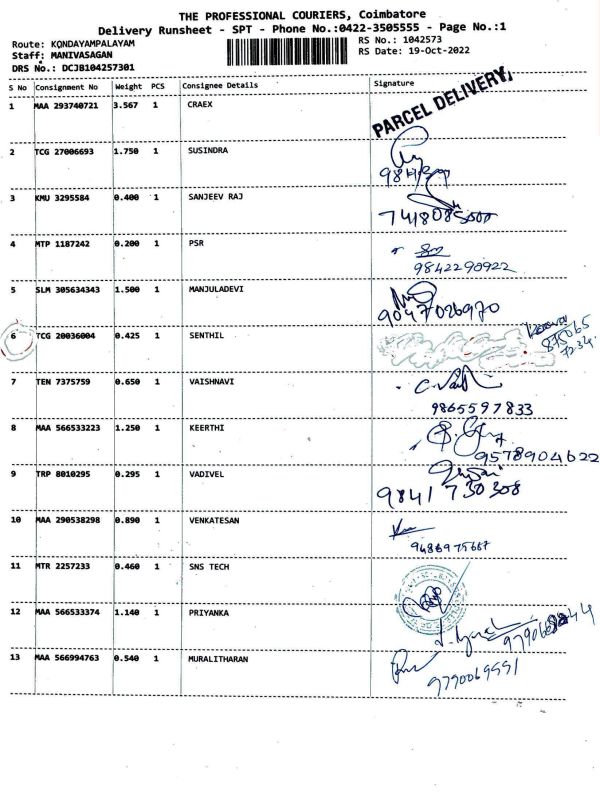 THE PROFESSIONAL COURIERS, Coimbatore
Delivery Runsheet - SPT - Phone No.:0422-3505555 - Page No.:1
Route: KONDAYAMPALAYAM
RS No.: 1042573
Staff: MANIVASAGAN
RS Date: 19-Oct-2022
DRS No.: DCJB104257301
S No Consignment No Weight PCS Consignee Details Signature
PARCEL DELIVERY,
1 MAA 293740721 3.567 1 CRAEX
2 TCG 27006693 1.750 1 SUSINDRA
3 KMU 3295584 0.400 1 SANJEEV RAJ
4 MTP 1187242 0.200 1 PSR
9842290922
5 SLM 305634343 1.500 1 MANJULADEVI
9047026970
6 TCG 20036004 0.425 1 SENTHIL
7 TEN 7375759 0.650 1 VAISHNAVI
9865597833
8 MAA 566533223 1.250 1 KEERTHI
9578904622
9 TRP 8010295 0.295 1 VADIVEL
9841730308
10 MAA 290538298 0.890 1 VENKATESAN
11 MTR 2257233 0.460 1 SNS TECH
12 MAA 566533374 1.140 1 PRIYANKA
13 MAA 566994763 0.540 1 MURALITHARAN